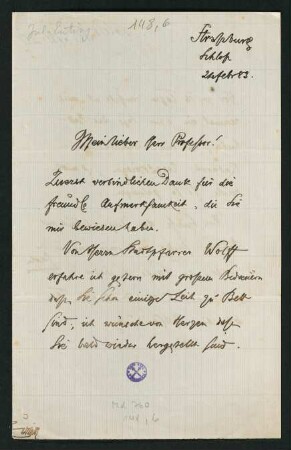 148,6
Straßburg
Schloß
Mein lieber Herr Professor!
Zuerst verbindlichen Dank für die
freundl. Aufmerksamkeit, die Sie
mir bewiesen haben.
Von Herrn Stadtpfarrer Wolff
erfahre ich gestern mit großem Bedauern
daß, Sie schon einige Zeit zu Bett
sind, ich wünsche von Herzen daß,
Sie bald wieder hergestellt sind.
148, 6